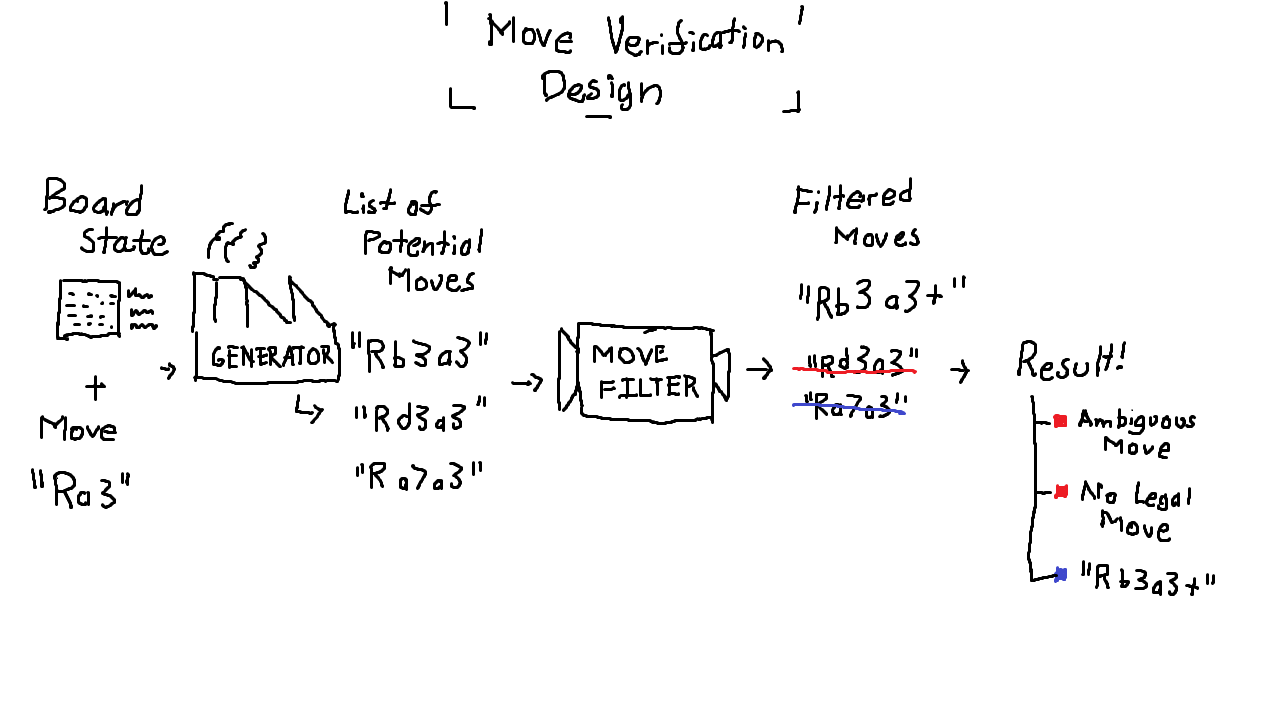 Move Verification
Design
Board
State
+
Move
"Ra3"
GENERATOR
List of
Potential
Moves
"Rb3a3"
"Rd3a3"
"Ra7a3"
MOVE
FILTER
Filtered
Moves
"Rb3a3+"
"Rd3a3"
"Ra7a3"
Result!
Ambiguous
Move
No Legal
Move
"Rb3a3+"